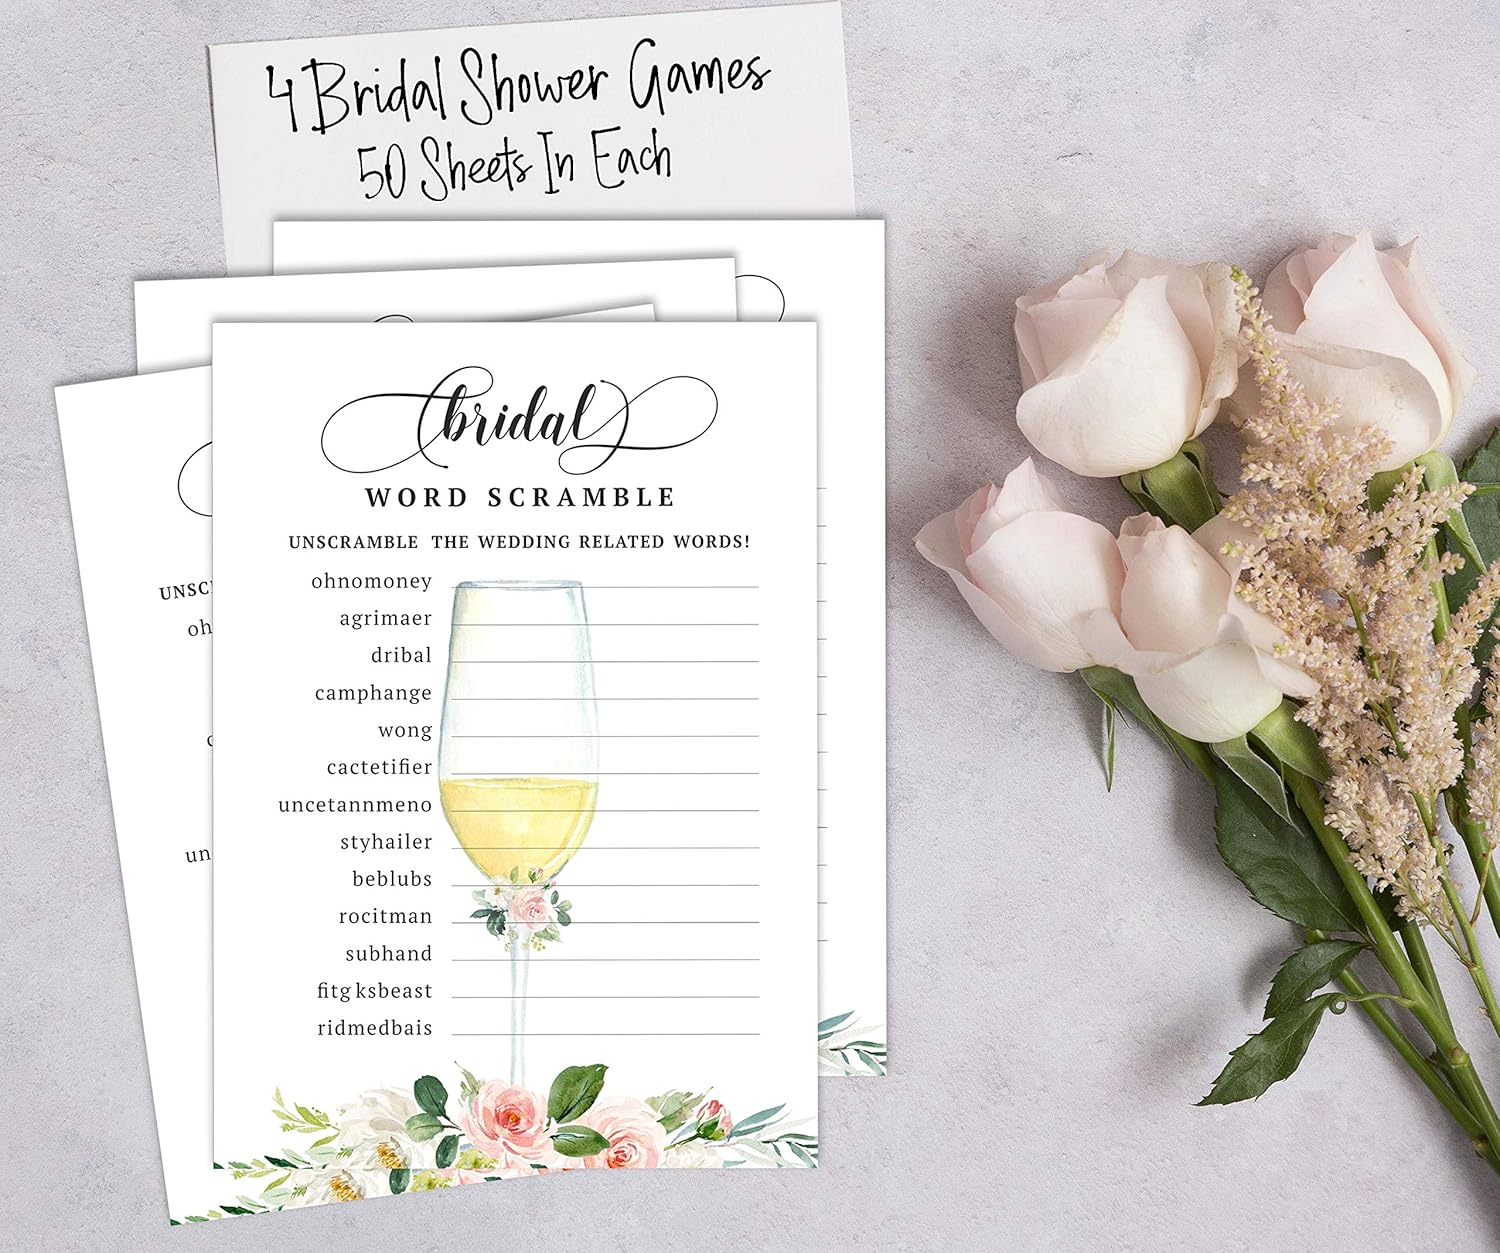 4 Bridal Shower Games
50 Sheets In Each
bridal
WORD SCRAMBLE
UNSCRAMBLE THE WEDDING RELATED WORDS!
ohnomoney
agrimaer
dribal
camphange
wong
cactetifier
uncetannmeno
styhailer
beblubs
rocitman
subhand
fitgksbeast
ridmedbais
UNSC
oh
un